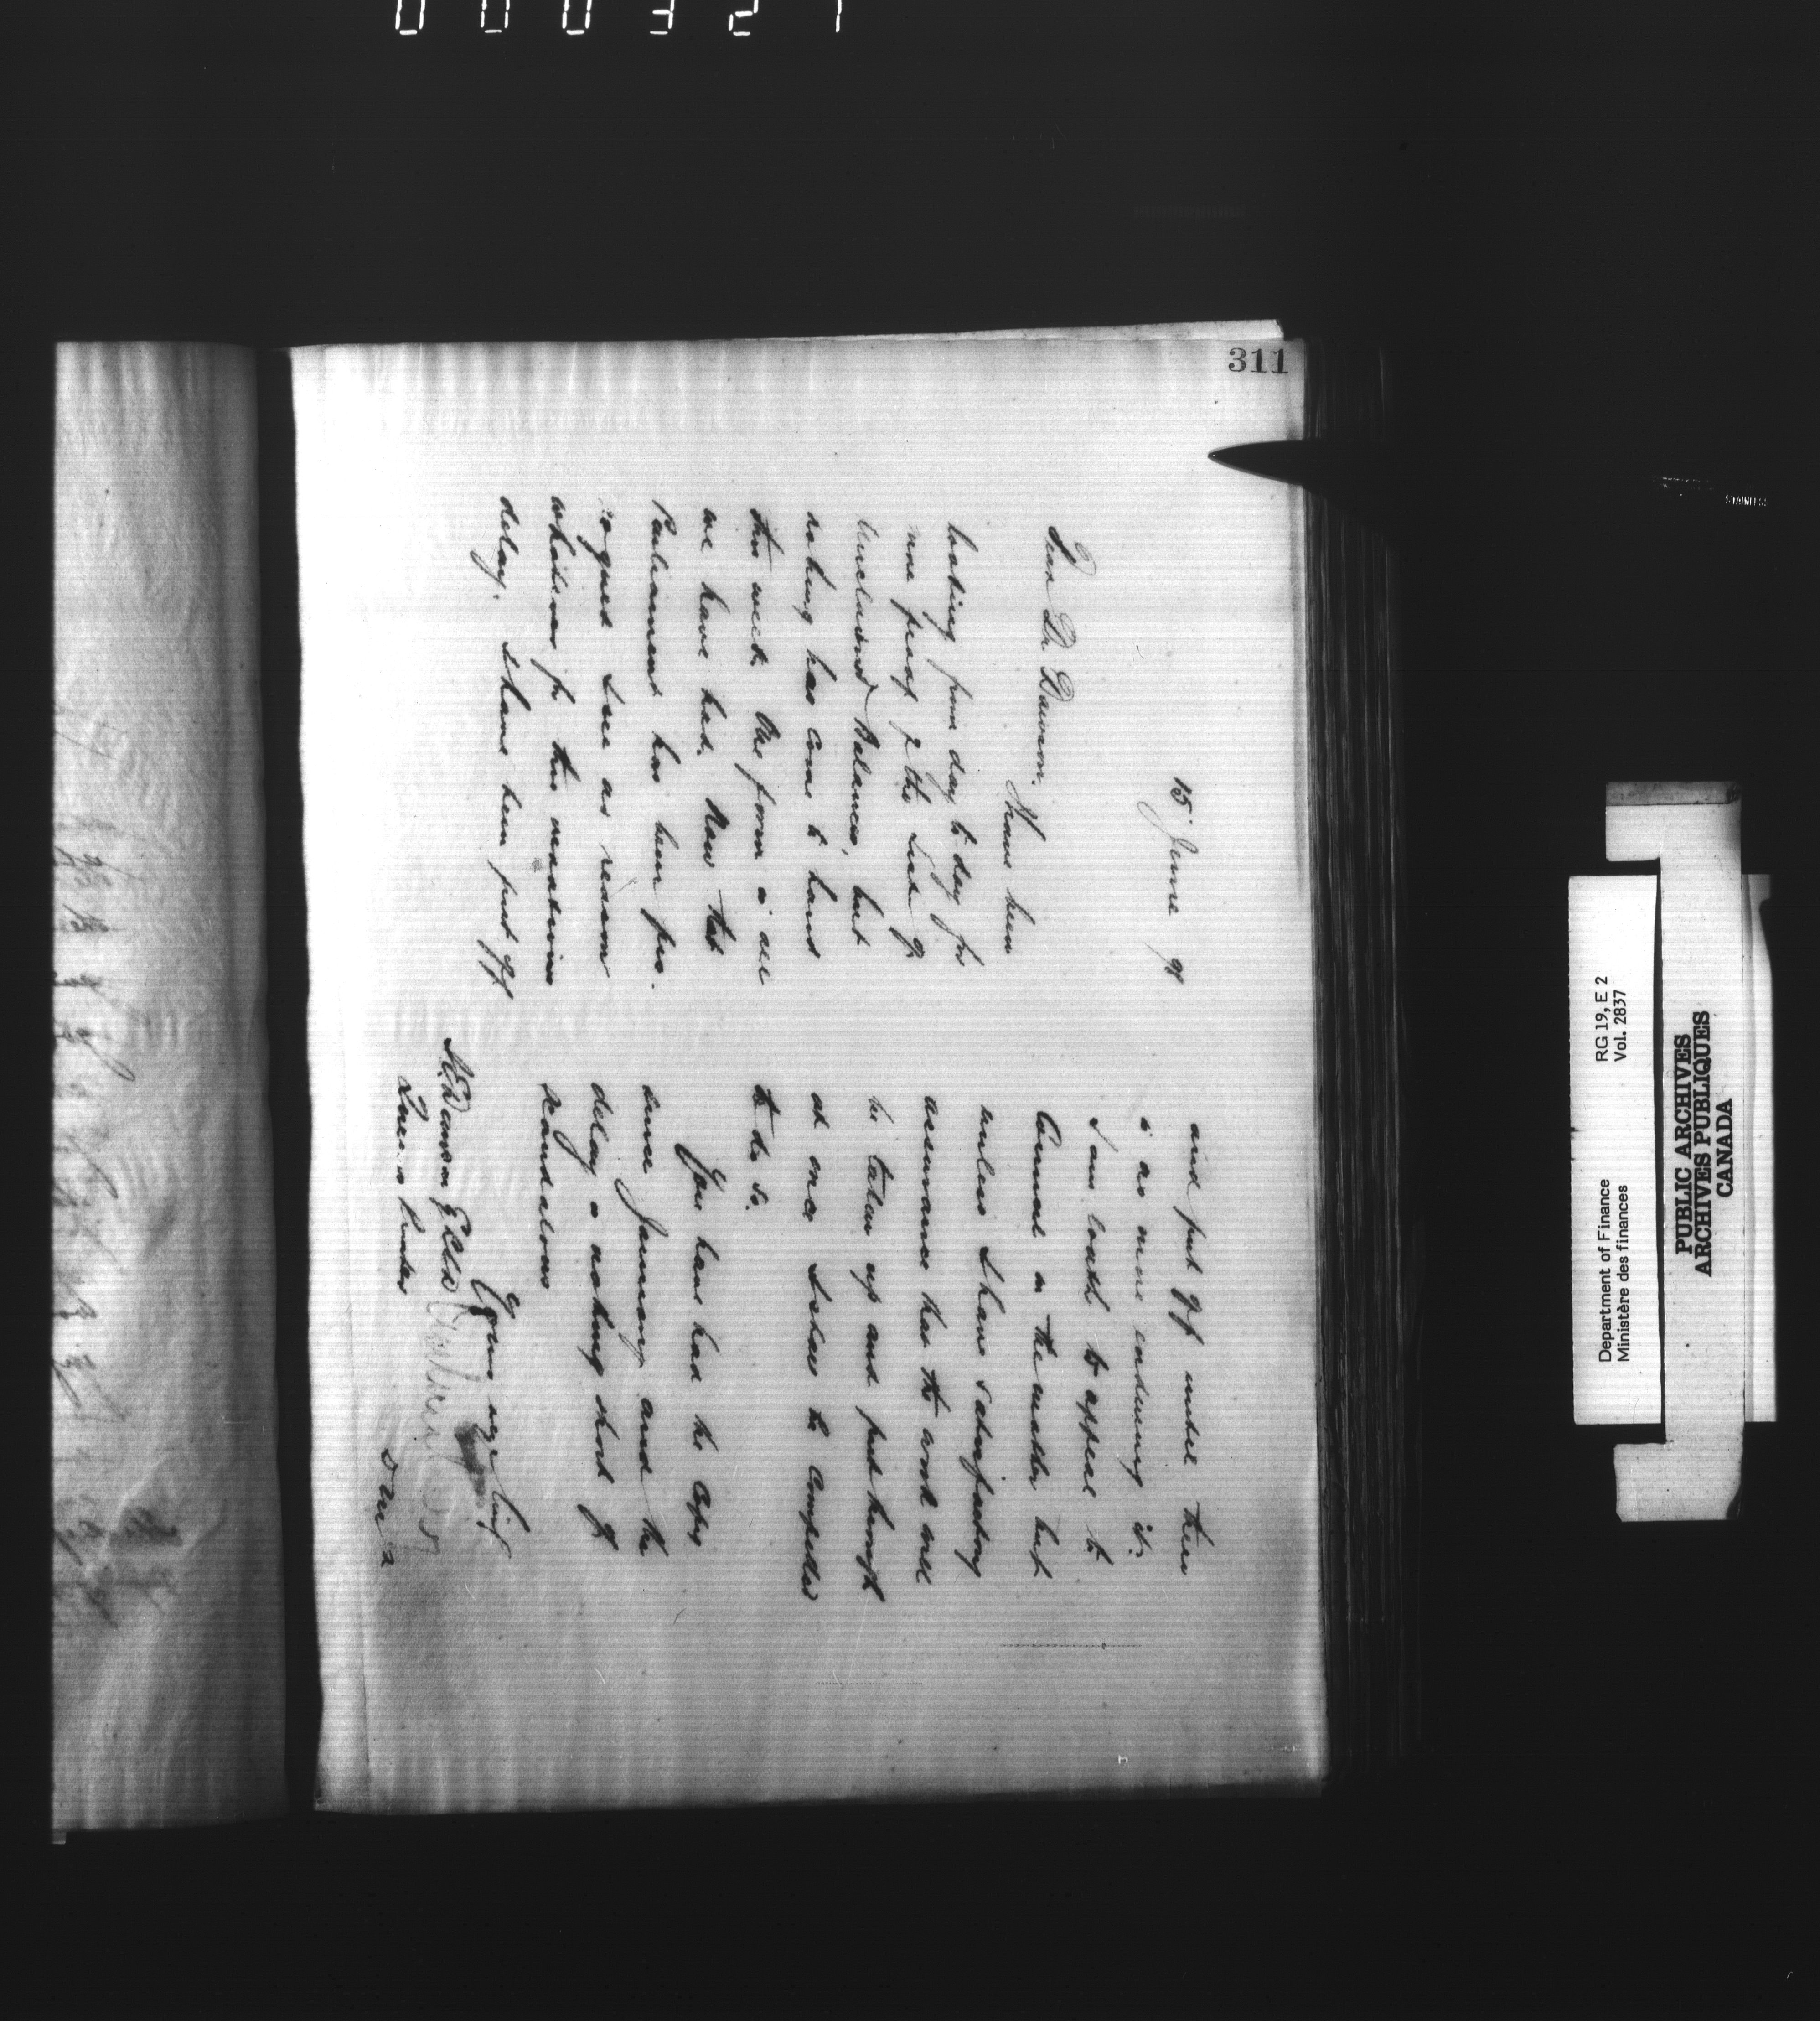 000321
311
15 June 98
Dear Dr Dawson.
I have been
looking from day to day for
more proof of the List of
Unclaimed Balances, but
nothing has come to hand
this week. One form is all
we have had. Now that
Parliament has been pro-
rogued I see no reason
whatever for this vexatious
delay. I have been put off
and put off until there
is no more enduring it.
I am loath to appeal to
Council in the matter but
unless I have satisfactory
assurances that the work will
be taken up and put through
at once I shall be compelled
to do so.
You have had the copy
since January and the
delay is nothing short of
scandalous
Yours
S. E. Dawson Esq
Queens Printer
Department of Finance
Ministère des finances
RG 19, E 2
Vol. 2837
PUBLIC ARCHIVES
ARCHIVES PUBLIQUES
CANADA